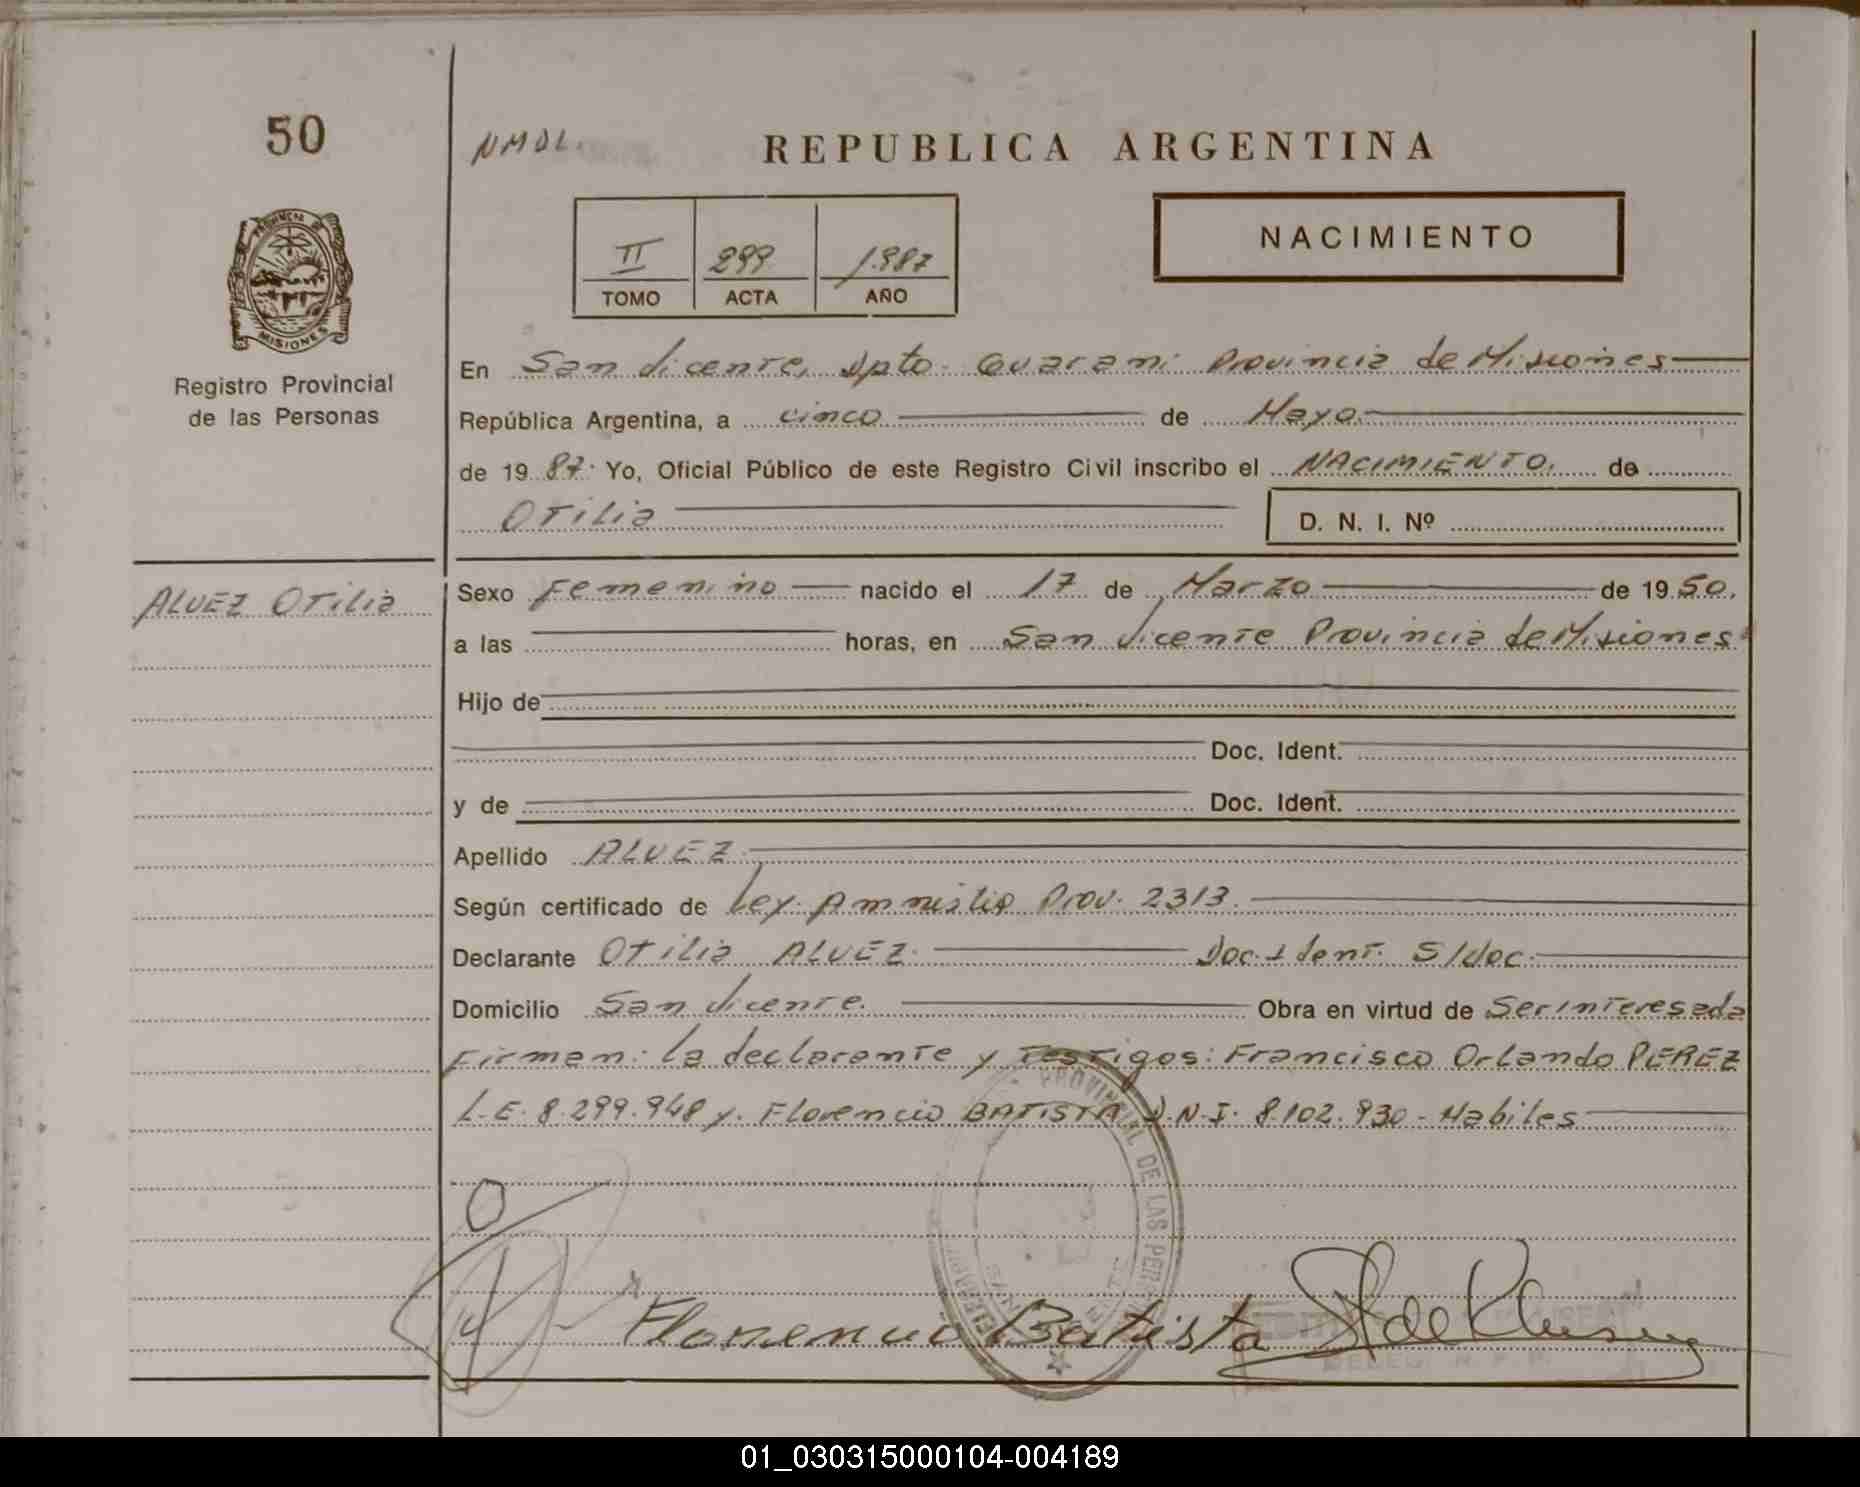 50
NMDL.
REPUBLICA ARGENTINA
PROVINCIA DE
MISIONES
Registro Provincial
de las Personas
II 299 1.987
TOMO ACTA AÑO
NACIMIENTO
En San Vicente, Dpto. Guarani Provincia de Misiones
República Argentina, a cinco de Mayo.
de 1987. Yo, Oficial Público de este Registro Civil inscribo el NACIMIENTO. de
Otilia
D. N. I. Nº
ALVEZ Otilia
Sexo Femenino nacido el 17 de Marzo de 1950.
a las horas, en San Vicente Provincia de Misiones
Hijo de
Doc. Ident.
y de Doc. Ident.
Apellido ALVEZ.
Según certificado de Ley Amnistia Prov. 2313.
Declarante Otilia ALVEZ. Doc. Ident. S/doc.
Domicilio San Vicente. Obra en virtud de Ser interesada
Firman: la declarante y Testigos: Francisco Orlando PEREZ
L.E. 8.299.948 y. Florencio BATISTA D.N.I. 8.102.930 - Habiles
PROVINCIAL DE LAS
Florencio Batista
01_030315000104-004189